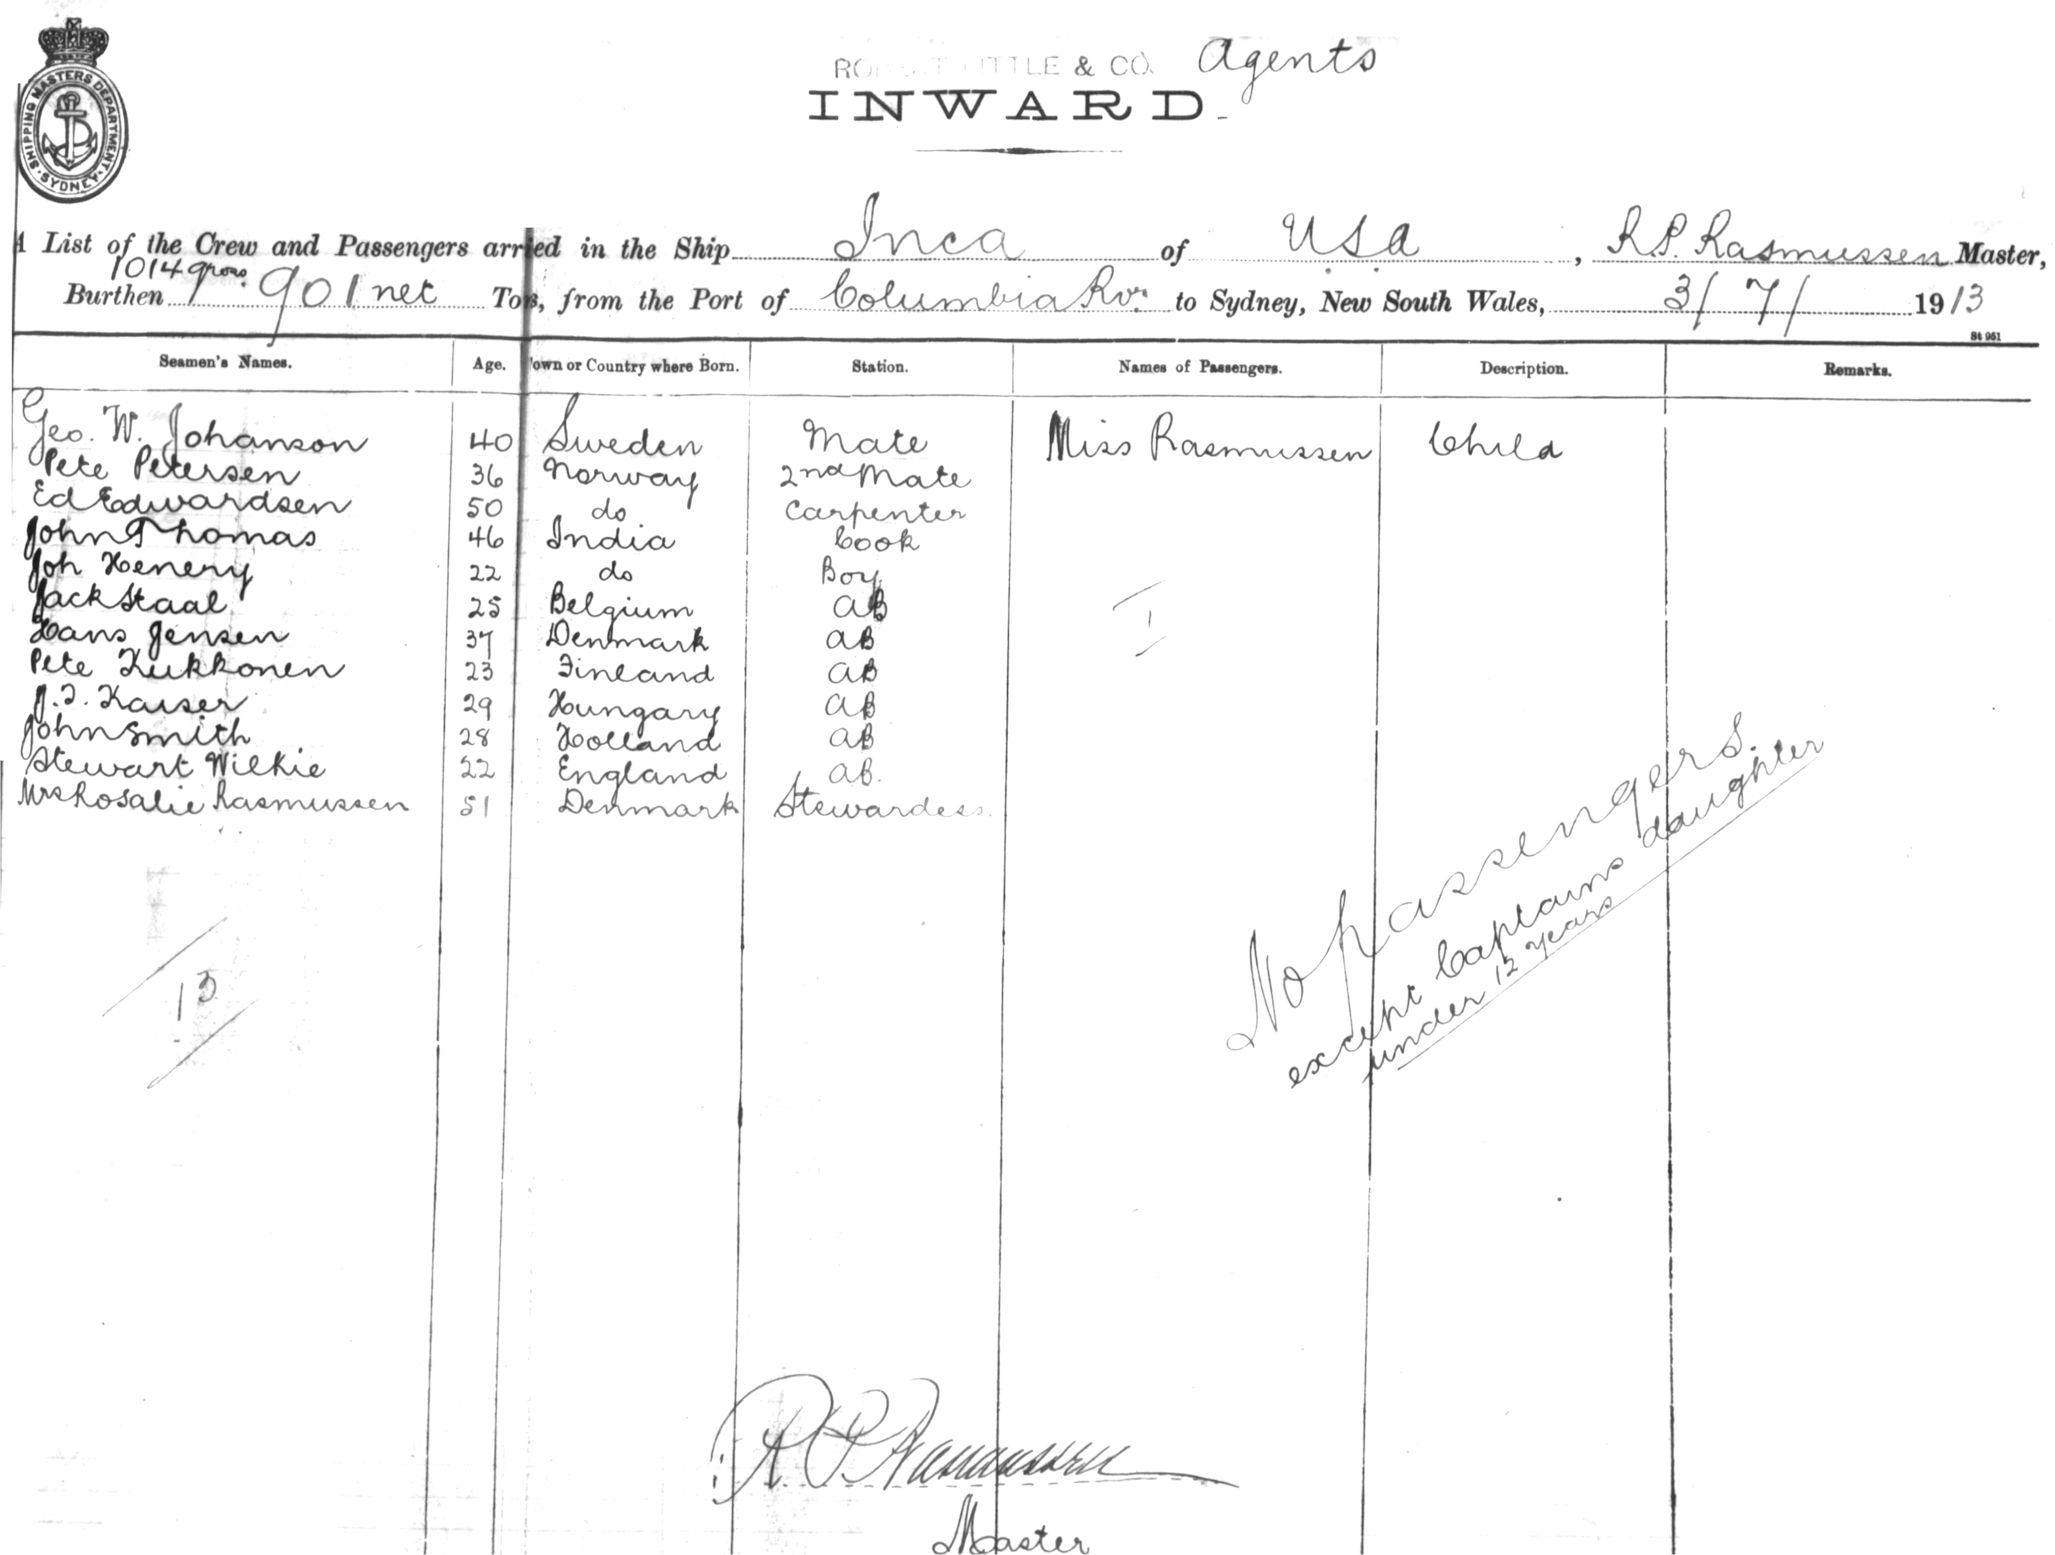 SHIPPING MASTERS DEPARTMENT. SYDNEY.
& CO. Agents
INWARD.
A List of the Crew and Passengers arrived in the Ship Inca of USA, R.P. Rasmussen Master,
1014 gross
Burthen 901 net Tons, from the Port of Columbia Rvr. to Sydney, New South Wales, 3/7/1913
St 951
Seamen's Names. Age. Town or Country where Born. Station. Names of Passengers. Description. Remarks.
Geo. W. Johanson 40 Sweden Mate Miss Rasmussen Child
Pete Petersen 36 Norway 2nd Mate
Ed Edwardsen 50 do Carpenter
John Thomas 46 India Cook
Joh Henery 22 do Boy
Jack Staal 25 Belgium AB
Hans Jensen 37 Denmark AB
Pete Kukkonen 23 Finland AB
J.I. Kaiser 29 Hungary AB
John Smith 28 Holland AB
Stewart Wilkie 22 England AB.
Mrs Rosalie Rasmussen 51 Denmark Stewardess.
1
No passengers.
except Captains daughter
under 12 years
13
R P Rasmussen
Master